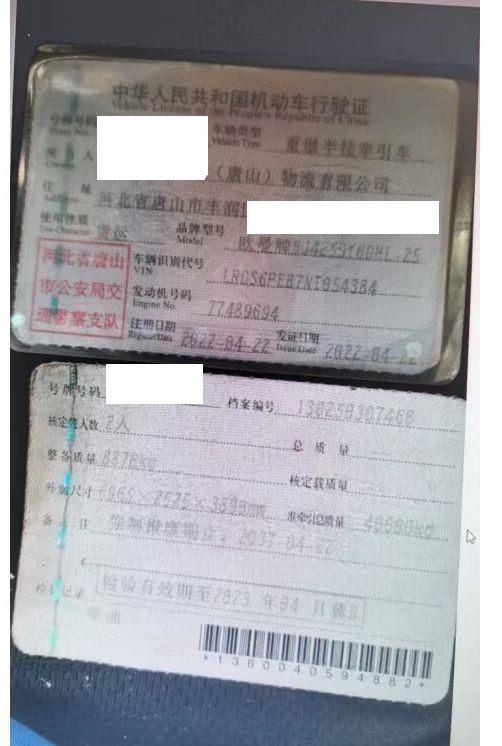 中华人民共和国机动车行驶证
Vehicle License of the People's Republic of China
号牌号码
Plate No.
车辆类型
Vehicle Type
重型半挂牵引车
所有人
（唐山）物流有限公司
住址
Address
河北省唐山市丰润区
使用性质
Use Character
货运
品牌型号
Model
欧曼牌
河北省唐山
市公安局交
通警察支队
车辆识别代号
VIN
发动机号码
Engine No.
77489694
注册日期
Register Date
2022-04-22
发证日期
Issue Date
2022-04-22
号牌号码
档案编号
核定载人数 2人
总质量
整备质量 8870kg
核定载质量
外廓尺寸
准牵引总质量
备注
2037-04-22
检验记录
检验有效期至2023年04月冀B
柴油
*1360040594882*